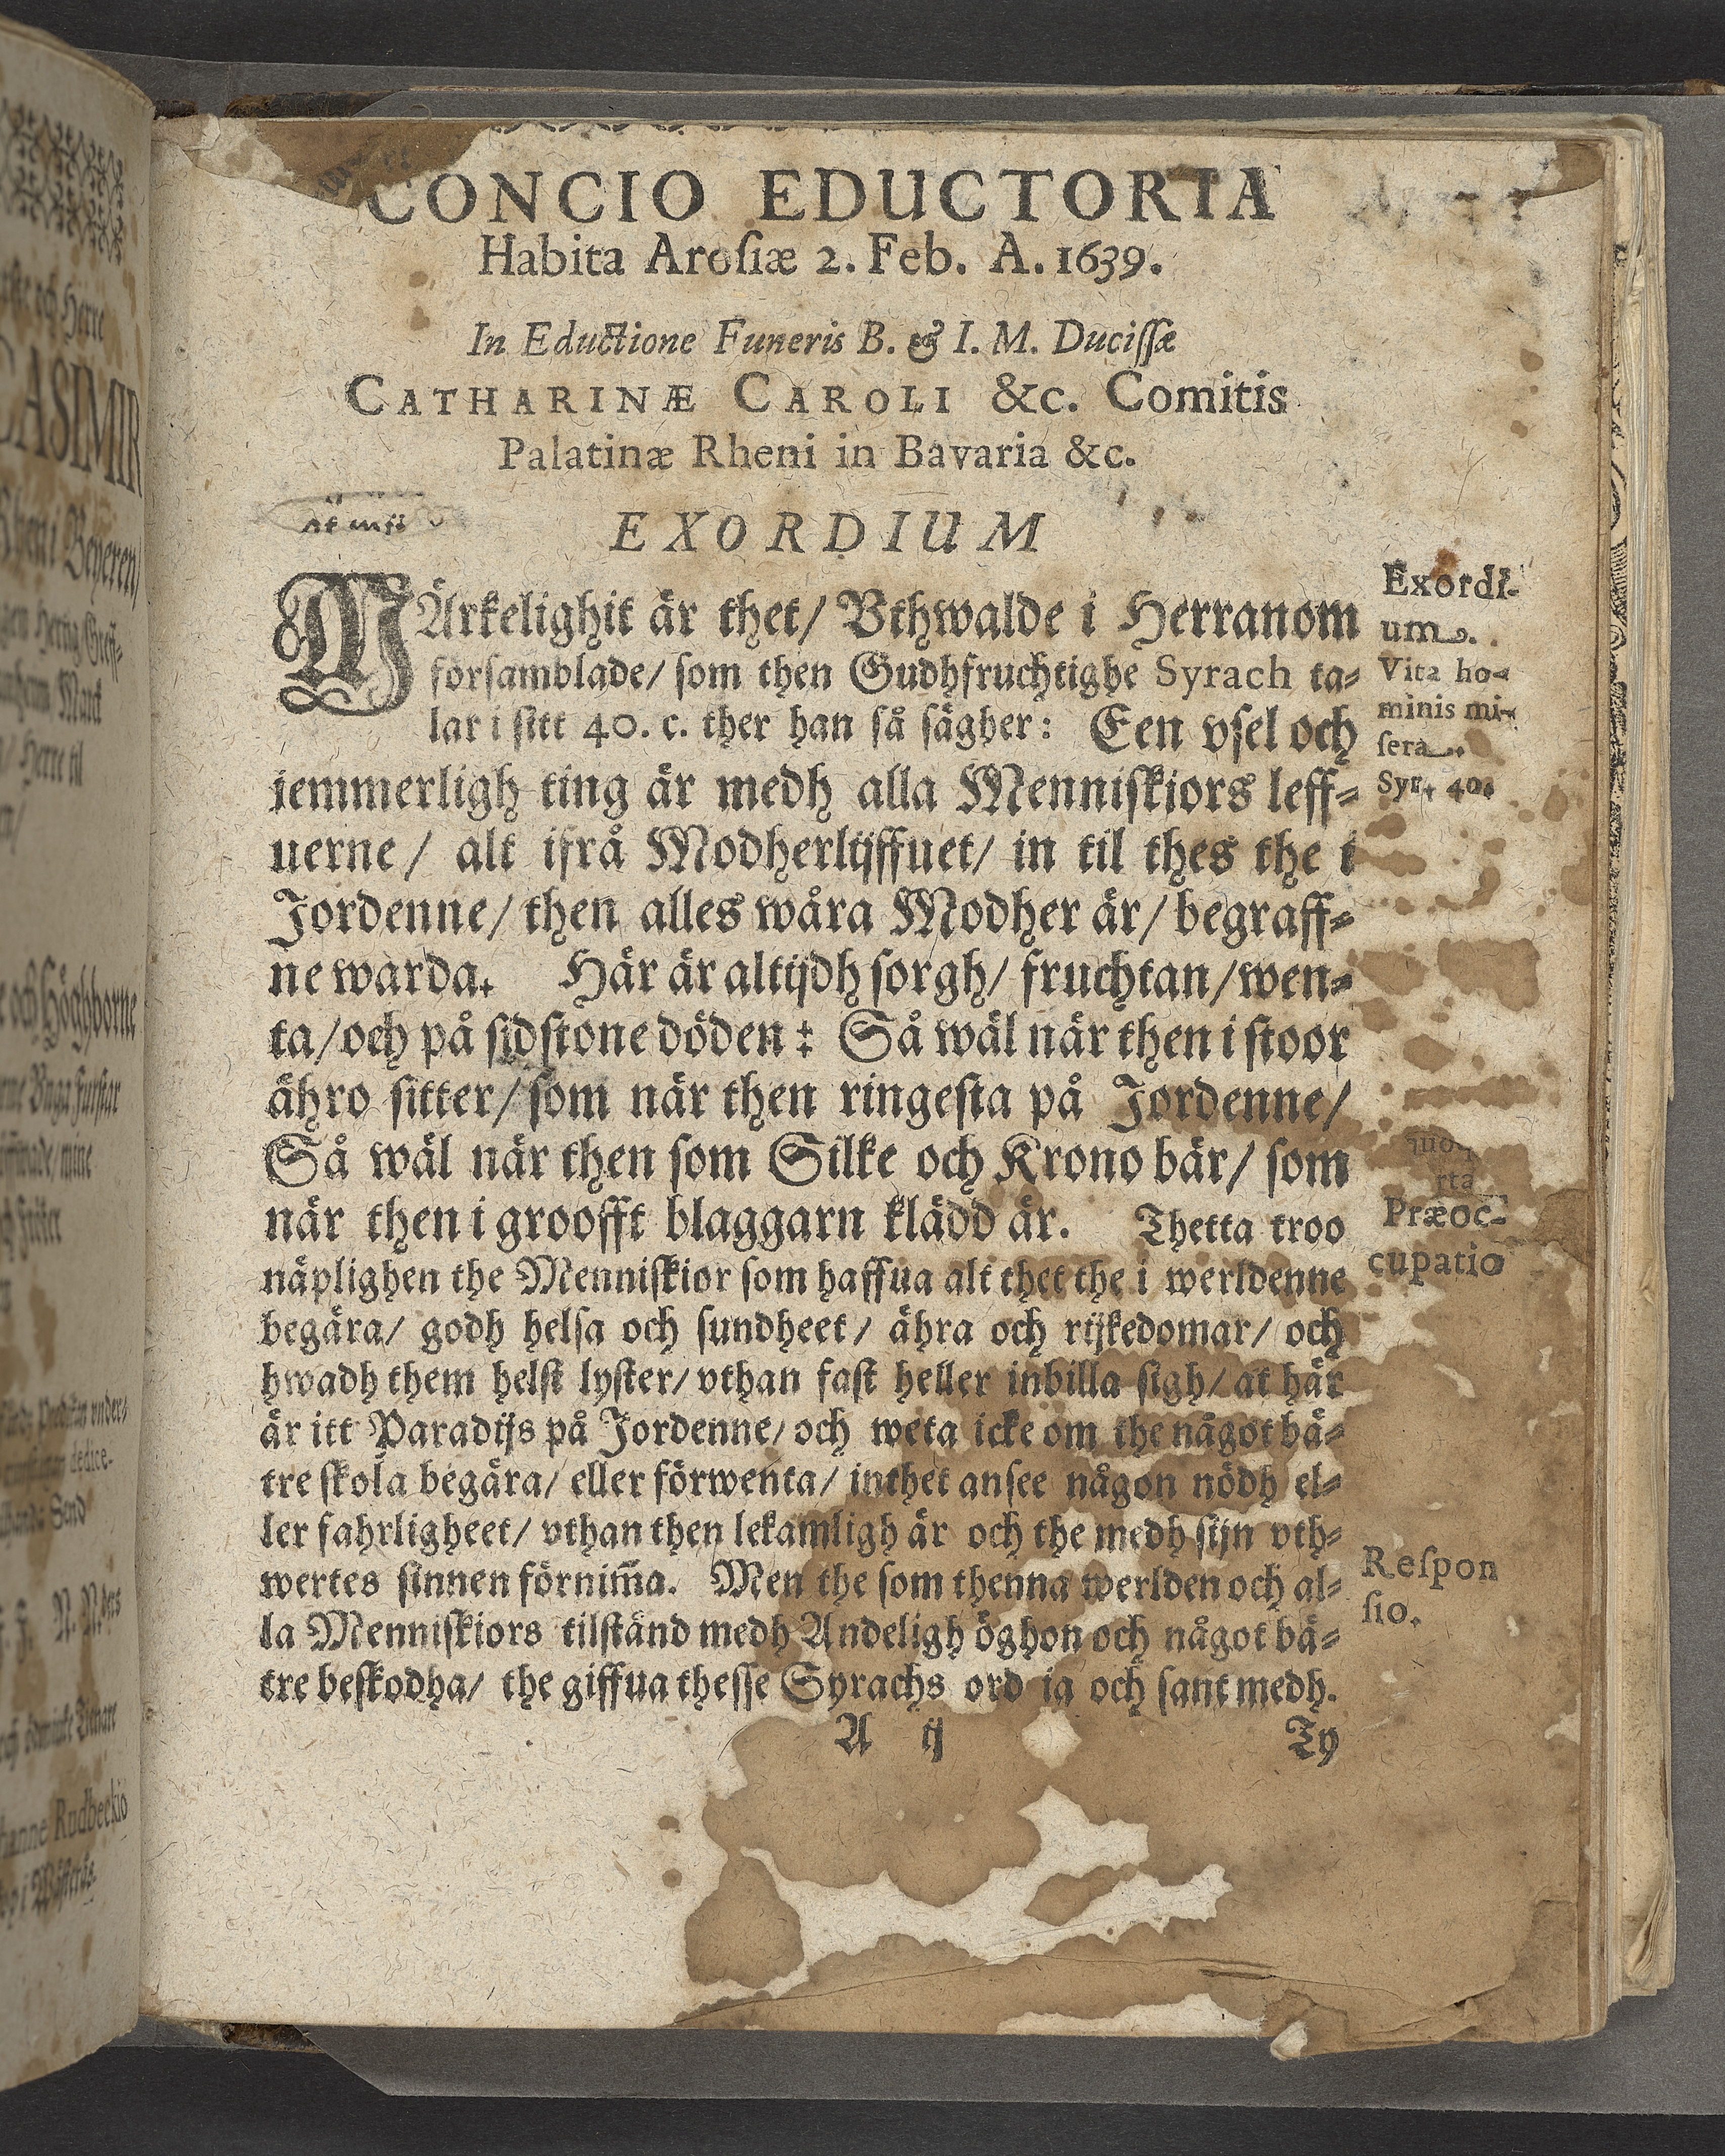 CONCIO EDUCTORIA
Habita Arosiæ 2. Feb. A. 1639.
In Eductione Funeris B. & I. M. Ducissæ
CATHARINÆ CAROLI &c. Comitis
Palatinæ Rheni in Bavaria &c.
EXORDIUM
MÄrkelighit är thet/ Vthwalde i Herranom
församblade/ som then Gudhfruchtighe Syrach ta-
lar i sitt 40. c. ther han så sägher: Een vsel och
jemmerligh ting är medh alla Menniskiors leff-
uerne/ alt ifrå Modherlijffuet/ in til thes the i
Jordenne/ then alles wåra Modher är/ begraff-
ne warda. Här är altijdh sorgh/ fruchtan/ wen-
ta/ och på sidstone döden: Så wäl när then i stoor
ähro sitter/ som när then ringesta på Jordenne/
Så wäl när then som Silke och Krono bär/ som
när then i groofft blaggarn klädd är. Thetta troo
näplighen the Menniskior som haffua alt thet the i werldenne
begära/ godh helsa och sundheet/ ähra och rijkedomar/ och
hwadh them helst lyster/ vthan fast heller inbilla sigh/ at här
är itt Paradijs på Jordenne/ och weta icke om the något bä-
tre skola begära/ eller förwenta/ inthet ansee någon nödh el-
ler fahrligheet/ vthan then lekamligh är och the medh sijn vth-
wertes sinnen förnim̃a. Men the som thenna werlden och al-
la Menniskiors tilständ medh Andeligh öghon och något bä-
tre beskodha/ the giffua thesse Syrachs ord ia och sant medh.
A ij Ty
Exordi-
um.
Vita ho-
minis mi-
sera.
Syr. 40.
Præoc-
cupatio
Respon
sio.
CASIMIR
och Höghborne